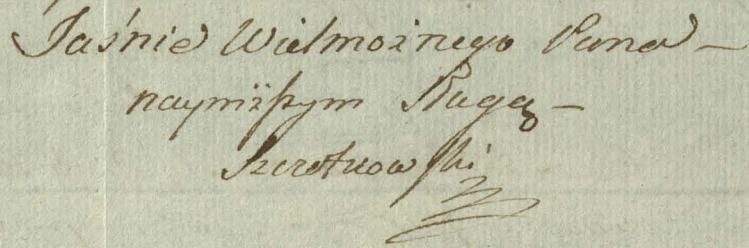 Jaśnie Wielmożnego Pana —
nayniższym Sługą —
Szerotkowski